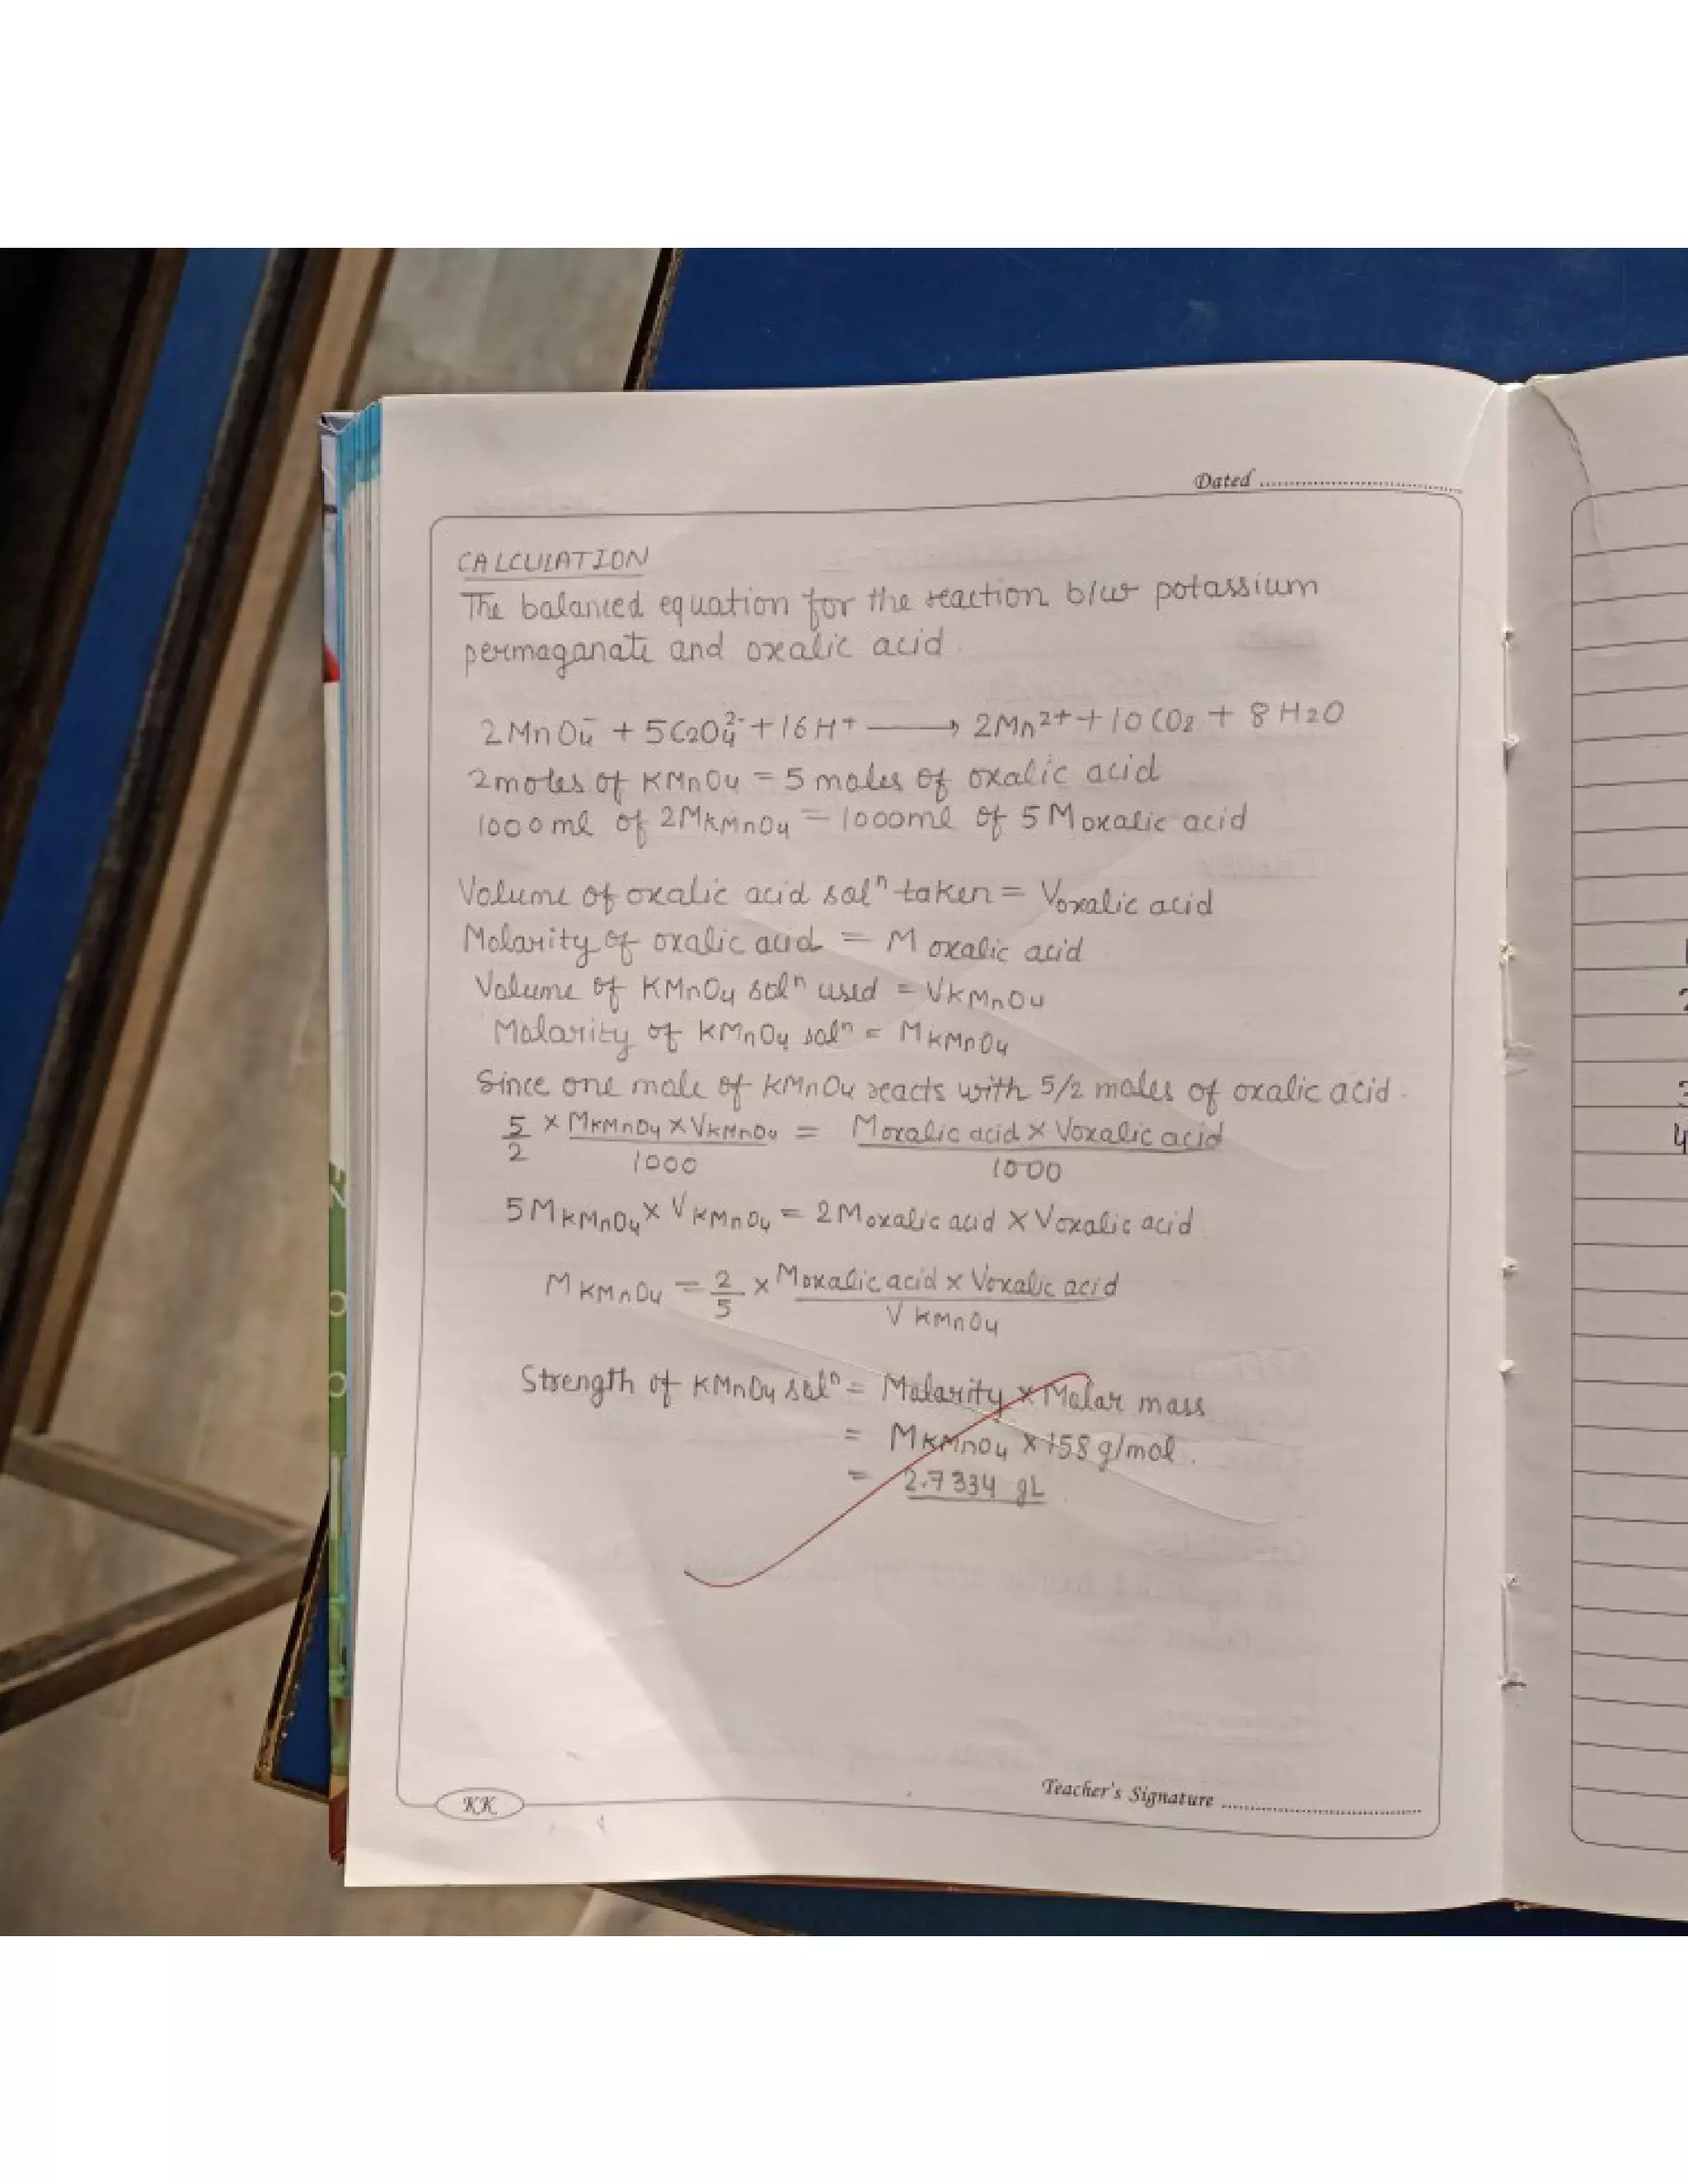 Dated
CALCULATION
The balanced equation for the reaction b/w potassium
permaganate and oxalic acid.
2MnO₄⁻ + 5C₂O₄²⁻ + 16H⁺ ⟶ 2Mn²⁺ + 10CO₂ + 8H₂O
2moles of KMnO₄ = 5 moles of oxalic acid
1000ml of 2M KMnO₄ = 1000ml of 5 M oxalic acid
Volume of oxalic acid solⁿ taken = V oxalic acid
Molarity of oxalic acid = M oxalic acid
Volume of KMnO₄ solⁿ used = V KMnO₄
Molarity of KMnO₄ solⁿ = M KMnO₄
Since one mole of KMnO₄ reacts with 5/2 moles of oxalic acid.
5/2 × M KMnO₄ × V KMnO₄ / 1000 = M oxalic acid × V oxalic acid / 1000
5 M KMnO₄ × V KMnO₄ = 2 M oxalic acid × V oxalic acid
M KMnO₄ = 2/5 × M oxalic acid × V oxalic acid / V KMnO₄
Strength of KMnO₄ solⁿ = Molarity × Molar mass
= M KMnO₄ × 158 g/mol.
= 2.7334 gL
Teacher's Signature
KK
2
3
4